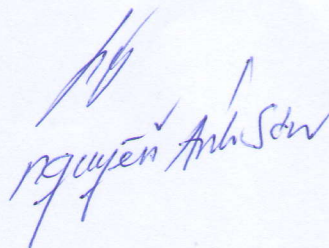 Nguyễn Anh Sơn